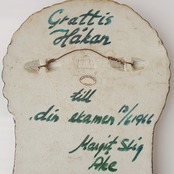 Grattis
Håkan
till
din examen 12/6 1966
Margit Stig
Åke